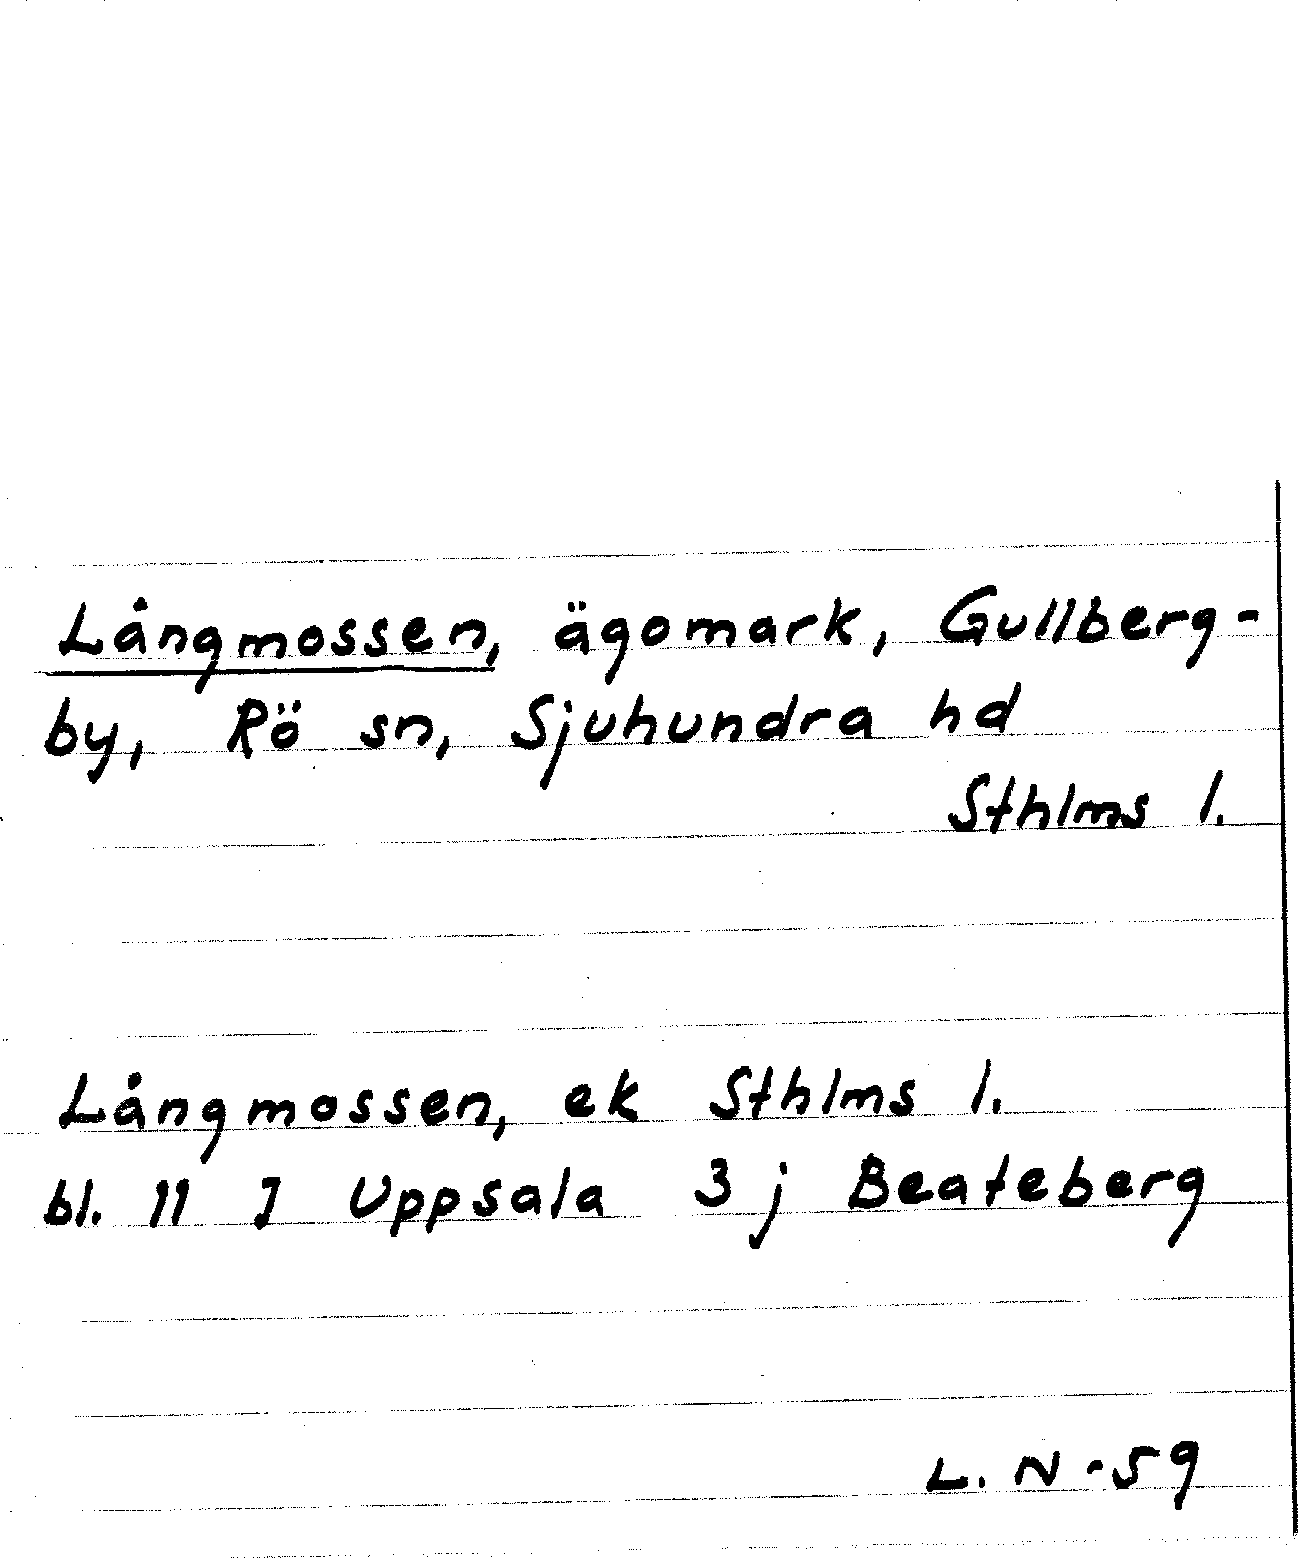 Långmossen, ägomark, Gullberg-
by, Rö sn, Sjuhundra hd
Sthlms l.
Långmossen, ek Sthlms l.
bl. 11 I Uppsala 3 j Beateberg
L. N -59